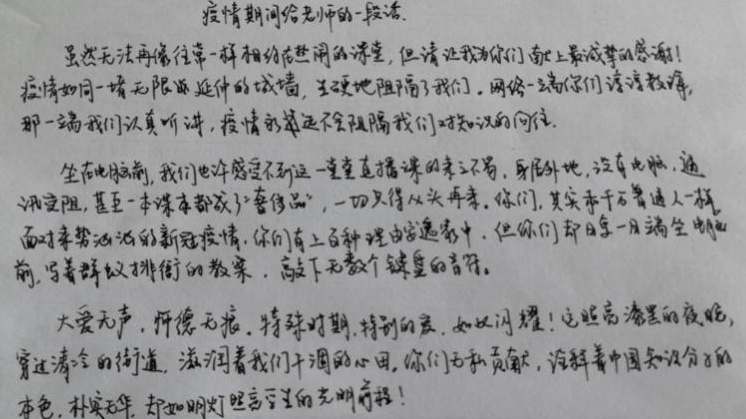 疫情期间给老师的一段话.
虽然无法再像往常一样相约在热闹的课堂,但请让我为你们献上最诚挚的感谢!
疫情如同一堵无限延伸的城墙,生硬地阻隔了我们。网络一端你们谆谆教诲,
那一端我们认真听讲,疫情永远不会阻隔我们对知识的向往.
坐在电脑前,我们也许感受不到这一堂堂直播课的来之不易,身居外地,没有电脑,通
讯受阻,甚至一本课本都成了"奢侈品",一切只得从头再来。你们,其实和千万普通人一样
面对来势汹汹的新冠疫情,你们有上百种理由字逸家中,但你们却日复一日端坐电脑
前,写着群蚁排衙的教案,敲下无数个键盘的音符。
大爱无声,师德无痕。特殊时期,特别的爱,如此闪耀!它照亮漆黑的夜晚,
穿过清冷的街道,滋润着我们干涸的心田。你们无私贡献,诠释着中国知识分子的
本色,朴实无华,却如明灯照亮学生的光明前程!